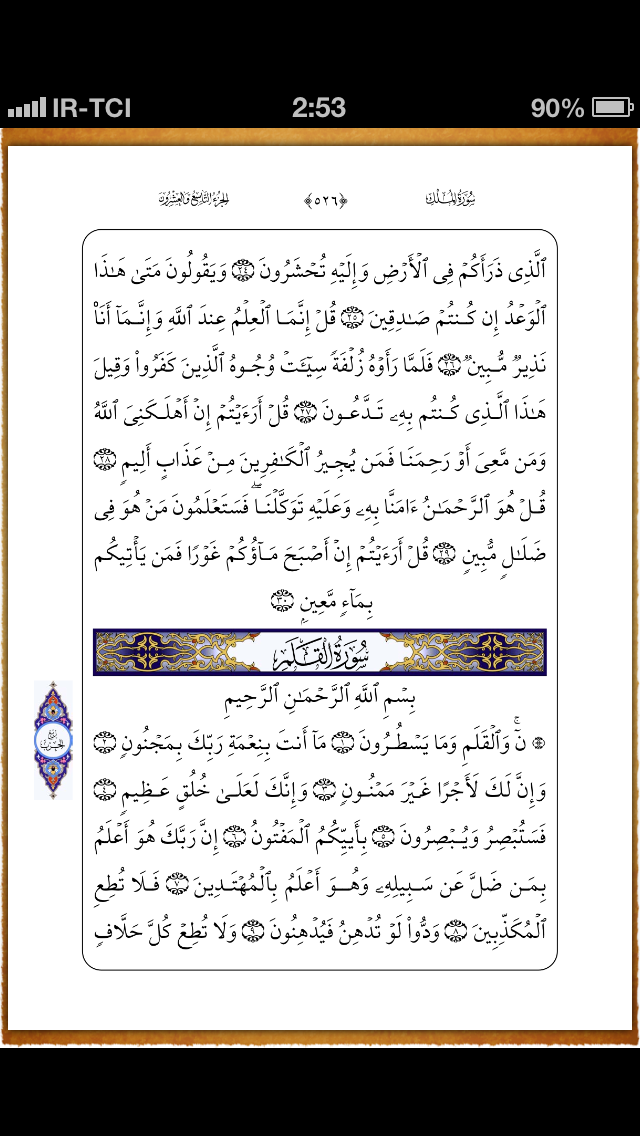 IR-TCI 2:53 90%
سُورَةُ المُلْكِ ﴿٥٢٦﴾ الجُزءُ التَّاسِعُ وَالعِشْرُونَ
ٱلَّذِى ذَرَأَكُمۡ فِى ٱلۡأَرۡضِ وَإِلَيۡهِ تُحۡشَرُونَ ٢٤ وَيَقُولُونَ مَتَىٰ هَـٰذَا
ٱلۡوَعۡدُ إِن كُنتُمۡ صَـٰدِقِينَ ٢٥ قُلۡ إِنَّمَا ٱلۡعِلۡمُ عِندَ ٱللَّهِ وَإِنَّمَآ أَنَا۟
نَذِيرٌ مُّبِينٌ ٢٦ فَلَمَّا رَأَوۡهُ زُلۡفَةً سِيٓـَٔتۡ وُجُوهُ ٱلَّذِينَ كَفَرُوا۟ وَقِيلَ
هَـٰذَا ٱلَّذِى كُنتُم بِهِۦ تَدَّعُونَ ٢٧ قُلۡ أَرَءَيۡتُمۡ إِنۡ أَهۡلَكَنِىَ ٱللَّهُ
وَمَن مَّعِىَ أَوۡ رَحِمَنَا فَمَن يُجِيرُ ٱلۡكَـٰفِرِينَ مِنۡ عَذَابٍ أَلِيمٍ ٢٨
قُلۡ هُوَ ٱلرَّحۡمَـٰنُ ءَامَنَّا بِهِۦ وَعَلَيۡهِ تَوَكَّلۡنَاۖ فَسَتَعۡلَمُونَ مَنۡ هُوَ فِى
ضَلَـٰلٍ مُّبِينٍ ٢٩ قُلۡ أَرَءَيۡتُمۡ إِنۡ أَصۡبَحَ مَآؤُكُمۡ غَوۡرًا فَمَن يَأۡتِيكُم
بِمَآءٍ مَّعِينٍۭ ٣٠
سُورَةُ القَلَمِ
بِسۡمِ ٱللَّهِ ٱلرَّحۡمَـٰنِ ٱلرَّحِيمِ
۞ نٓۚ وَٱلۡقَلَمِ وَمَا يَسۡطُرُونَ ١ مَآ أَنتَ بِنِعۡمَةِ رَبِّكَ بِمَجۡنُونٍ ٢
وَإِنَّ لَكَ لَأَجۡرًا غَيۡرَ مَمۡنُونٍ ٣ وَإِنَّكَ لَعَلَىٰ خُلُقٍ عَظِيمٍ ٤
فَسَتُبۡصِرُ وَيُبۡصِرُونَ ٥ بِأَييِّكُمُ ٱلۡمَفۡتُونُ ٦ إِنَّ رَبَّكَ هُوَ أَعۡلَمُ
بِمَن ضَلَّ عَن سَبِيلِهِۦ وَهُوَ أَعۡلَمُ بِٱلۡمُهۡتَدِينَ ٧ فَلَا تُطِعِ
ٱلۡمُكَذِّبِينَ ٨ وَدُّوا۟ لَوۡ تُدۡهِنُ فَيُدۡهِنُونَ ٩ وَلَا تُطِعۡ كُلَّ حَلَّافٍ